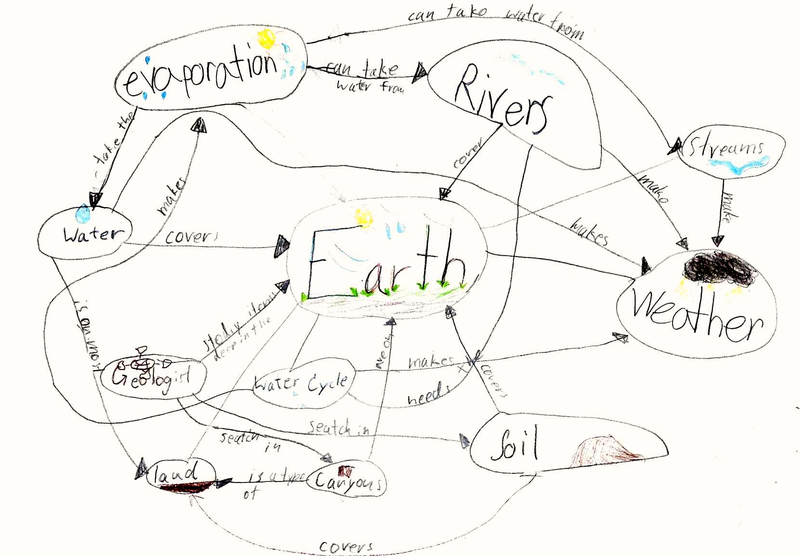 can take water from
evaporation
can take
water from
Rivers
Streams
take the
makes
cover
make
make
Water
covers
makes
Earth
Weather
is on most
study items
deep in the
are on
Geologist
Water Cycle
makes
needs
covers
search in
search in
Soil
land
is a type
of
Canyons
covers